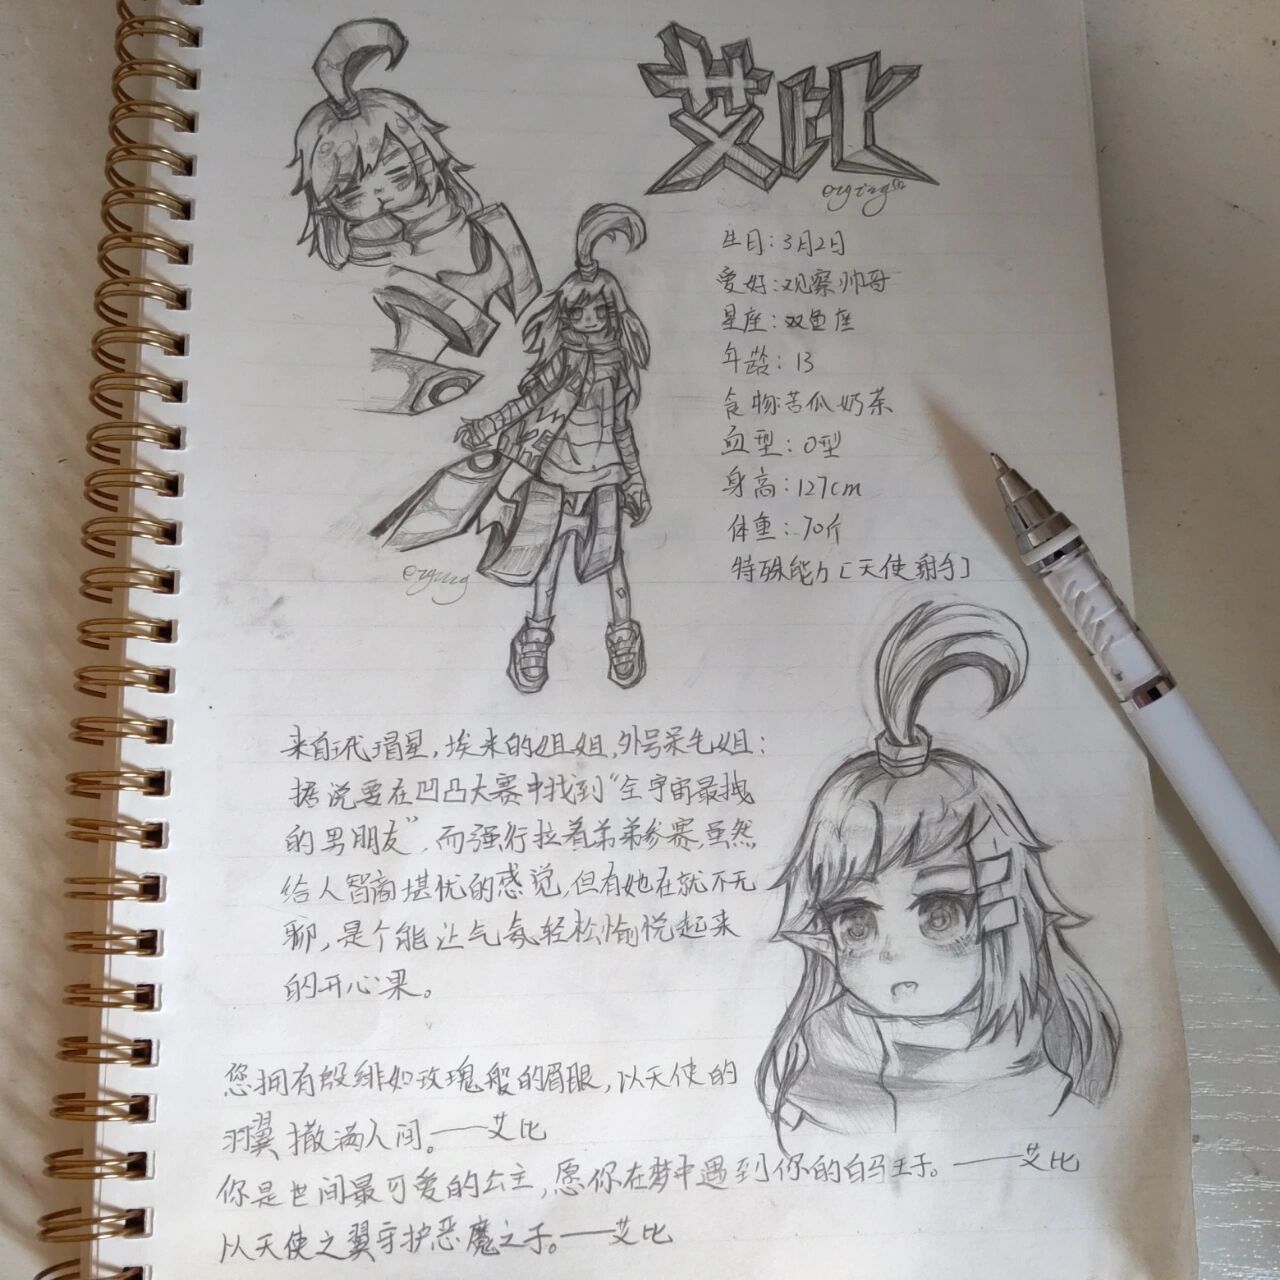 艾比
生日：3月2日
爱好：观察帅哥
星座：双鱼座
年龄：13
食物：苦瓜奶茶
血型：O型
身高：127cm
体重：70斤
特殊能力［天使射手］
来自玳瑁星，埃米的姐姐，外号呆毛姐：
据说要在凹凸大赛中找到“全宇宙最拽
的男朋友”，而强行拉着弟弟参赛，虽然
给人智商堪忧的感觉，但有她在就不无
聊，是个能让气氛轻松愉悦起来
的开心果。
您拥有殷绯如玫瑰般的眉眼，以天使的
羽翼撒满人间。——艾比
你是世间最可爱的公主，愿你在梦中遇到你的白马王子。——艾比
以天使之翼守护恶魔之子。——艾比